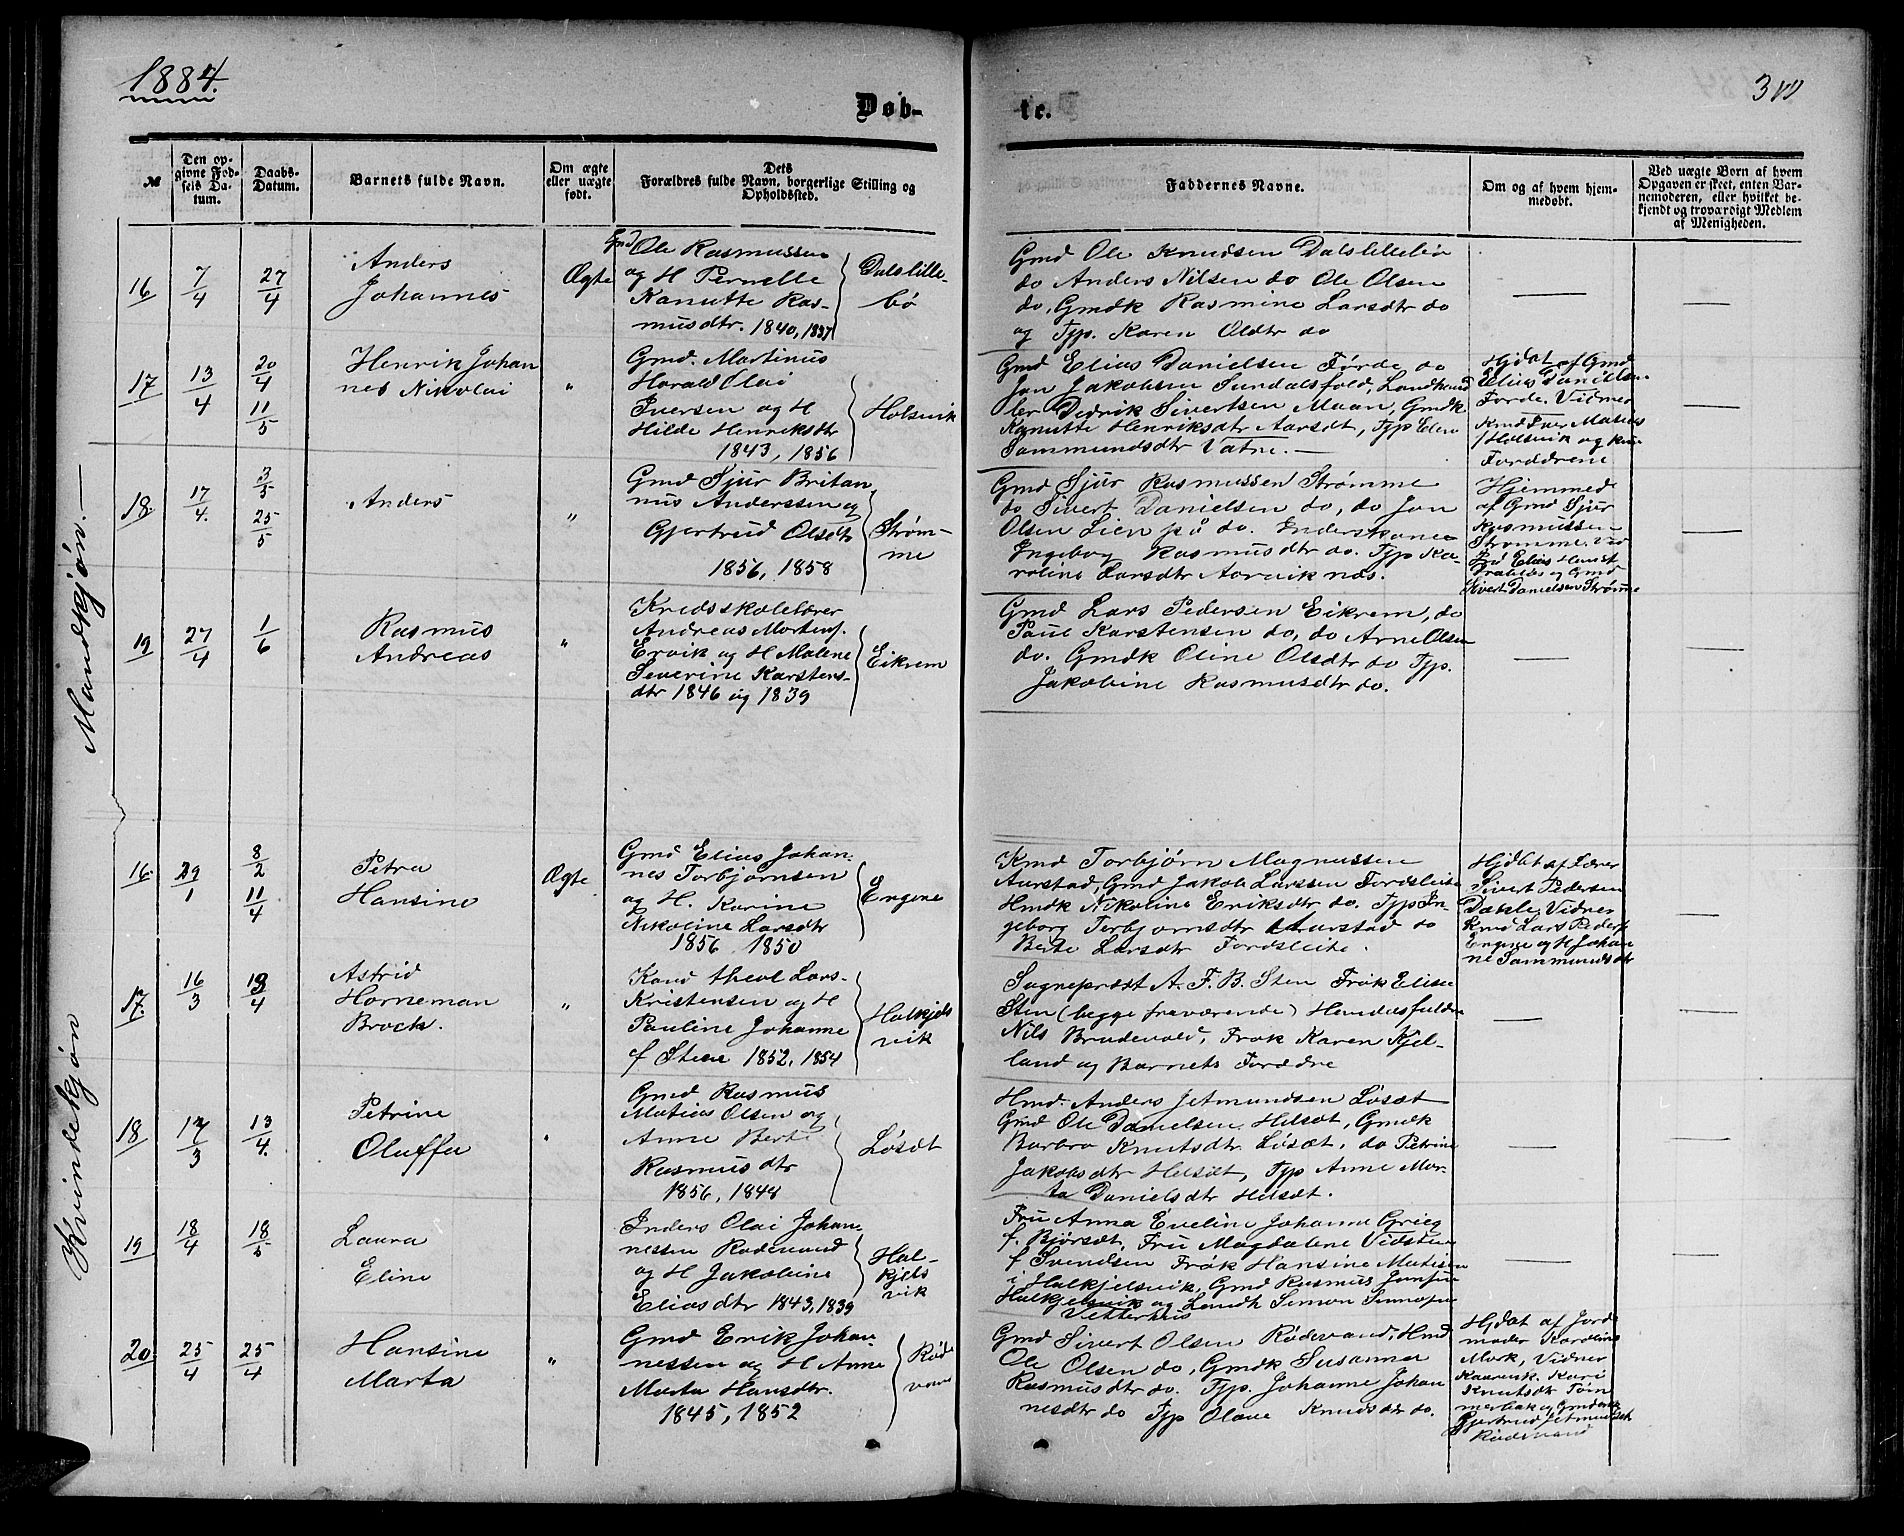 1884.
Døb-
te.
№
Den op-
givne Fød-
sels Da-
tum.
Daabs-
Datum.
Barnets fulde Navn.
Om ægte
eller uægte
født.
Dets
Forældres fulde Navn, borgerlige Stilling og
Opholdssted.
Faddernes Navne.
Om og af hvem hjem-
medøbt.
Ved uægte Børn af hvem
Opgaven er skeet, enten Bar-
nemoderen, eller hvilket be-
kjendt og troværdigt Medlem
af Menigheden.
Mandkjøn.
16 7/4 27/4
Anders
Johannes
Ægte
Gmd Ole Rasmussen
og H Pernelle
Kanutte Ras-
musdtr. 1840, 1837
Dalslille-
bø
Gmd Ole Knudsen Dalslillebø
do Anders Nilsen do Ole Olsen
do, Gmdk Rasmine Larsdtr do
og Tjp. Karen Olsdtr do
17 13/4 20/4 11/5
Henrik Johan
nes Nikolai
"
Gmd. Martinus
Harald Olai
Iversen og H
Hilde Henriksdtr
1843, 1856
Holsvik
Gmd Elias Danielsen Førde do
Jon Jakobsen Sundalsfold, Landhand
ler Didrik Sivertsen Maan, Gmdk
Kanutte Henriksdtr Aarsdt, Tjp Elen
Sammundsdtr Vatne.
Hjdøt af Gmd
Elias Danielsen
Førde. Vidner
Kmd Iver Matias
Holsvik og
Forældrene
18. 17/4. 3/5 25/5
Anders
"
Gmd Sjur Britan
nus Anderssen og
Gjertrud Olsdtr
1856, 1858
Strøm-
me
Gmd Sjur Rasmussen Strømme
do Sivert Danielsen do, do Jon
Olsen Lien på do. Inderstkone
Ingeborg Rasmusdtr do. Tjp Ka-
roline Larsdtr Aarviknæs.
Hjemmed
af Gmd Sjur
Rasmussen
Strømme. Vid
Elias
og Gmd
Sivert Danielsen Strømme
19 27/4 1/6
Rasmus
Andreas
"
Kredsskolelærer
Andreas Mortens.
Ervik og H Malene
Severine Karstens-
dtr 1846 og 1839
Eikrem
Gmd Lars Pedersen Eikrem, do
Paul Karstensen do, do Arne Olsen
do. Gmdk Oline Olsdtr do Tjp.
Jakobine Rasmusdtr do.
Kvindekjøn
16. 29/1 8/2 11/4
Petra
Hansine
Ægte
Gmd Elias Johan-
nes Torbjørnsen
og H. Karine
Nikoline Larsdtr
1856 1850
Engene
Kmd Torbjørn Magnussen
Aurstad, Gmd Jakob Larssen Fordsleite
Hmdk Nikoline Eriksdtr do. Tjp In-
geborg Terbjørnsdtr Aurstad do
Berte Larsdtr Fordsleite.
Hjdøt af Lærer
Sivert Pedersen
Dækle. Vidner
Kmd Lars Peders.
Engene og H Johan
ne Sammundsdtr
17. 16/3 13/4
Astrid
Horneman
Brock.
"
Kand theol Lars
Kristensen og H
Pauline Johanne
f Steen 1852, 1854
Halkjels
vik
Sogneprest A. F. B. Sten Frøk Elise
Sten (begge fraværende)
Nils Brudevold, Frøk Karen Kjel-
land og Barnets Forældre
18 17/3 13/4.
Petrine
Oluffa
"
Gmd Rasmus
Matias Olsen og
Anne Berte
Rasmusdtr
1856, 1848
Løsæt
Hmd. Anders Jetmundsen Løsæt
Gmd Ole Danielsen Helsæt, Gmdk
Barbro Knutsdtr Løsæt, do Petrine
Jakobsdtr Helsæt, Tjp Anne Mar-
ta Danielsdtr Helsæt.
19 18/4 18/5
Laura
Eline
Inders Olai Johan-
nessen Rødevand
og H Jakobine
Eliasdtr 1843, 1839
Hal-
kjels
vik
Fru Anna Eveline Johanne Grieg
f. Bjørsæt, Fru Magdalene Vidsteen
f Svendsen Frøk Hansine Matisen
i Halkjelsvik, Gmd Rasmus
Halkjelsvik og Landh Simon
Vetterhus
20 25/4 25/4
Hansine
Marta
"
Gmd Erik Johan-
nessen og H Anne
Marta Hansdtr.
1845, 1852
Røde
vand
Gmd Sivert Olsen Rødevand, Hmd
Ole Olsen do, Gmdk Susanna
Rasmusdtr do. Tjp. Johanne Johan
nesdtr do Tjp Olave Knudsdtr do.
Hjdøt af Jord
moder Karoline
Mork, Vidner
Kari
Knutsdtr Tøm
merbak og Gmdenk
Gjertrud Jetmundsdt
Rødevand